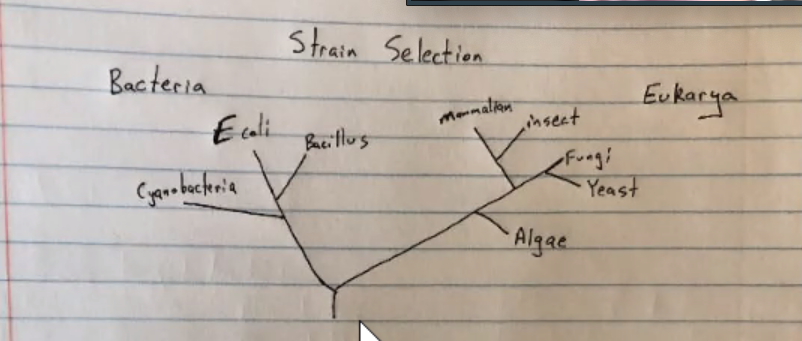 Strain Selection
Bacteria
Eukarya
E coli
Bacillus
Cyanobacteria
mammalian
insect
Fungi
Yeast
Algae